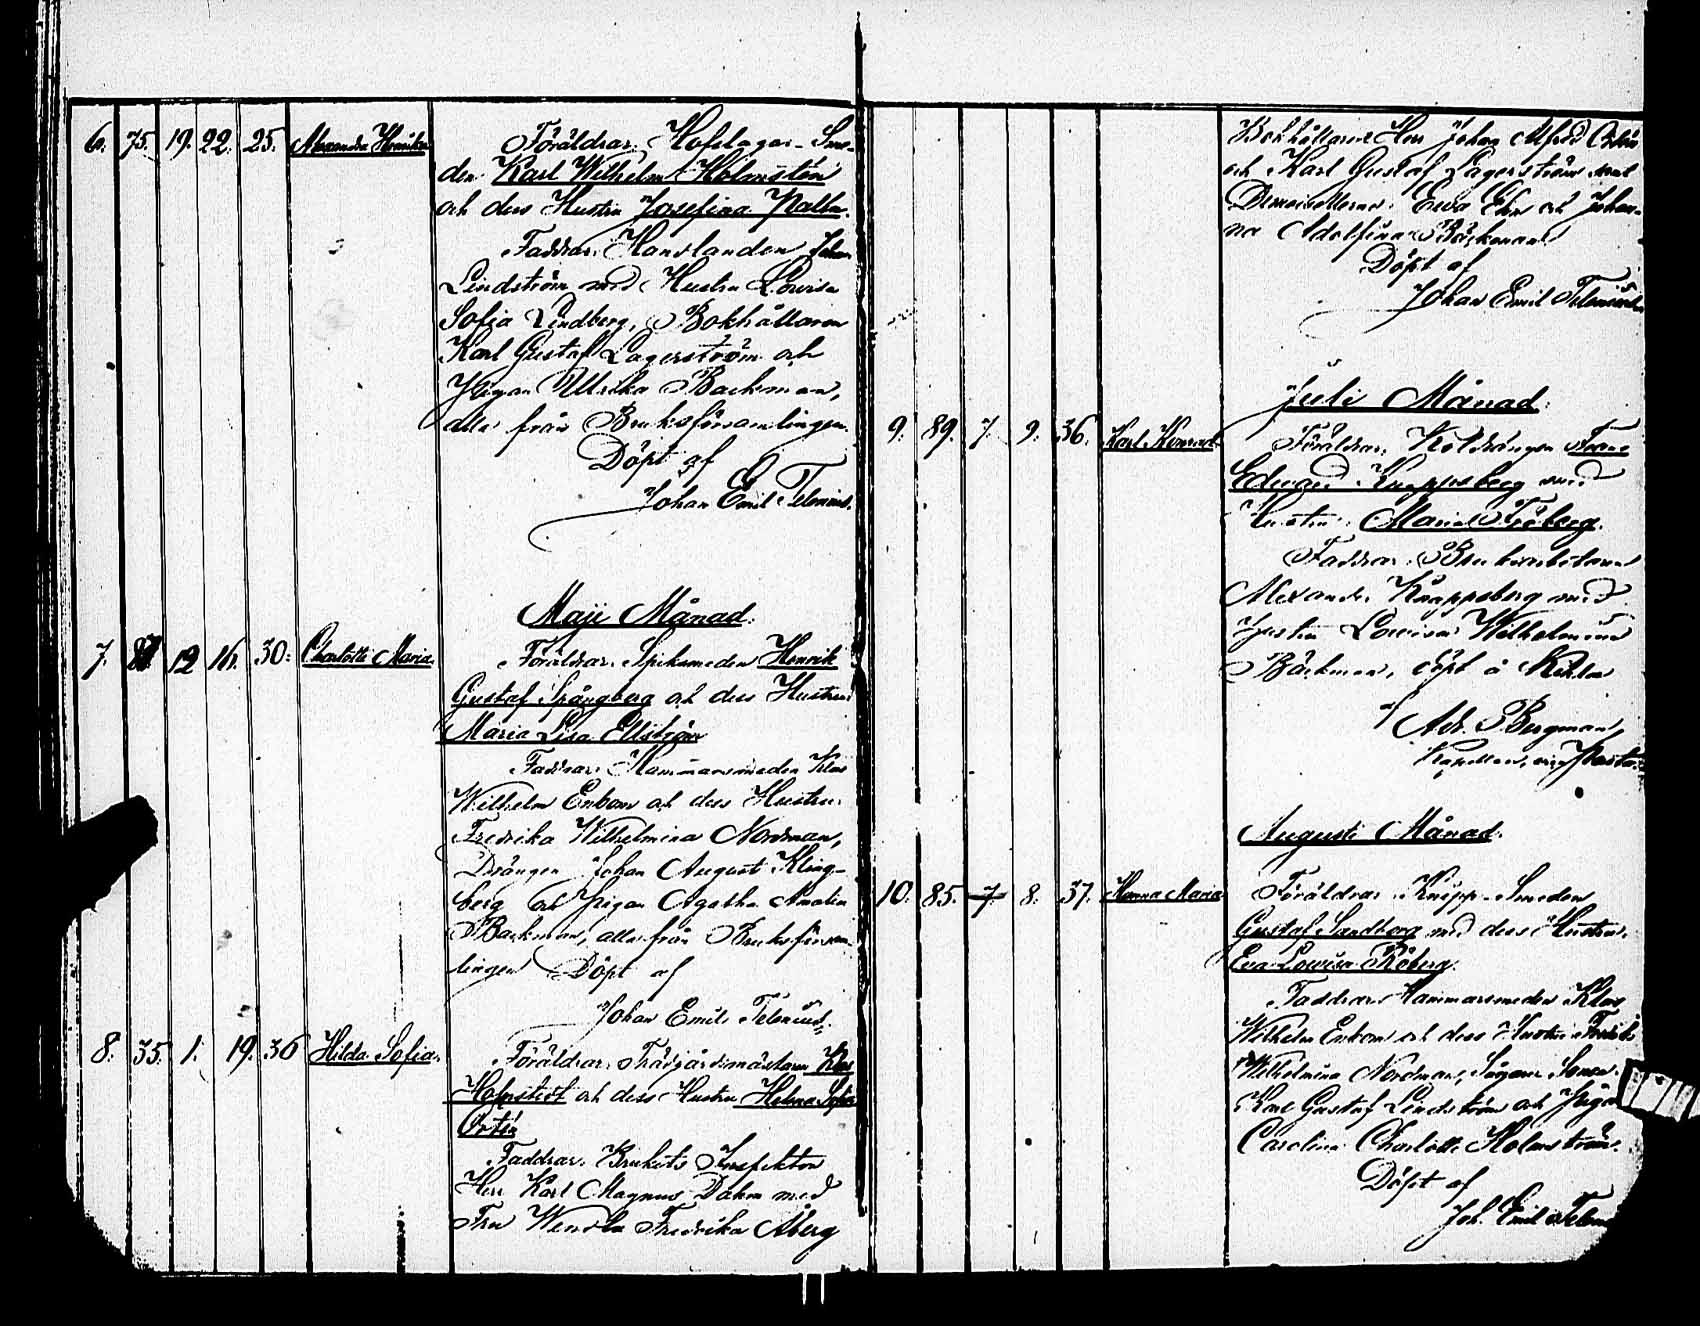 6. 75. 19. 22. 25. Alexandra Henrika
Föräldrar: Hofslagar-Sme-
den Karl Wilhelm Holmstén
och dess Hustru Josefina
Faddrar: Handlanden Johan
Lindström med Hustru Lovisa
Sofia Lindberg, Bokhållaren
Karl Gustaf Lagerström och
Pigan Ulrika Backman,
alla från Bruksförsamlingen.
Döpt af
Johan Emil Telenius.
Maji Månad.
7. 12 16. 30. Charlotte Maria
Föräldrar: Spiksmeden Henrik
Gustaf Spångberg och dess Hustru
Maria Lisa Ellström
Faddrar: Hammarsmeden Klas
Wilhelm Enbom och dess Hustru
Fredrika Wilhelmina Nordman,
Drängen Johan August Kling-
berg och Pigan Agatha Amalia
Backman, alla från Bruksförsam-
lingen Döpt af
Johan Emil Telenius.
8. 35. 1. 19. 36 Hilda Sofia.
Föräldrar: Trädgårdsmästaren Klas
Holmstedt och dess Hustru Helena Sofia
Ortén
Faddrar: Brukets Inspektor
Herr Karl Magnus Dahm med
Fru Wendla Fredrika Åberg
Bokhållarne Herr Johan Alfred Ortén
och Karl Gustaf Lagerström samt
Demoisellerna Ewa och Johan-
na Adolfina Bäckman
Döpt af
Johan Emil Telenius
Juli Månad.
9. 89. 7. 9. 36. Karl Konrad
Föräldrar: Koldrängen Frans
Edvard Knappsberg med
Hustru Maria Fröberg.
Faddrar: Bruksarbetaren
Alexander Knappsberg med
Hustru Lowisa Wilhelmina
Bäckman, döpt å Kihla
af Adr. Bergman,
Kapellan,
Augusti Månad.
10. 85. 7. 8. 37. Hanna Maria
Föräldrar: Knipp-Smeden
Gustaf Sandberg med dess Hustru
Eva Lowisa Råberg.
Faddrar: Hammarsmeden Klas
Wilhelm Enbom och dess Hustru Fredrika
Wilhelmina Nordman, Sågare Sonen
Karl Gustaf Lindström och Pigan
Carolina Charlotta Holmström.
Döpt af
Joh. Emil Telenius